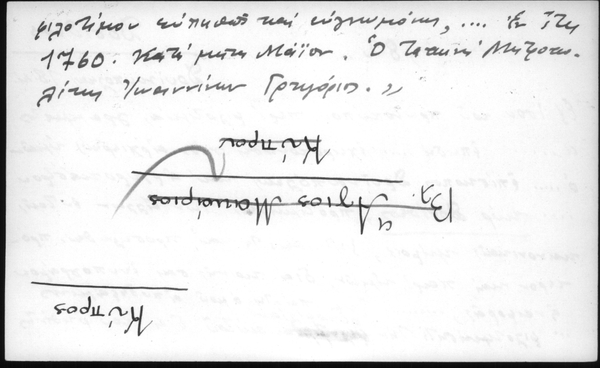 φιλοτίμου εὐπειθοῦς καὶ εὐγνωμόνως, .... Ἐν ἔτει
1760. Κατὰ μῆνα Μάϊον. Ὁ Ταπεινὸς Μητροπο-
λίτης Ἰωαννίνων Γρηγόριος. »
Κύπρου
Βλ. Ἅγιος Μακάριος
Κύπρος